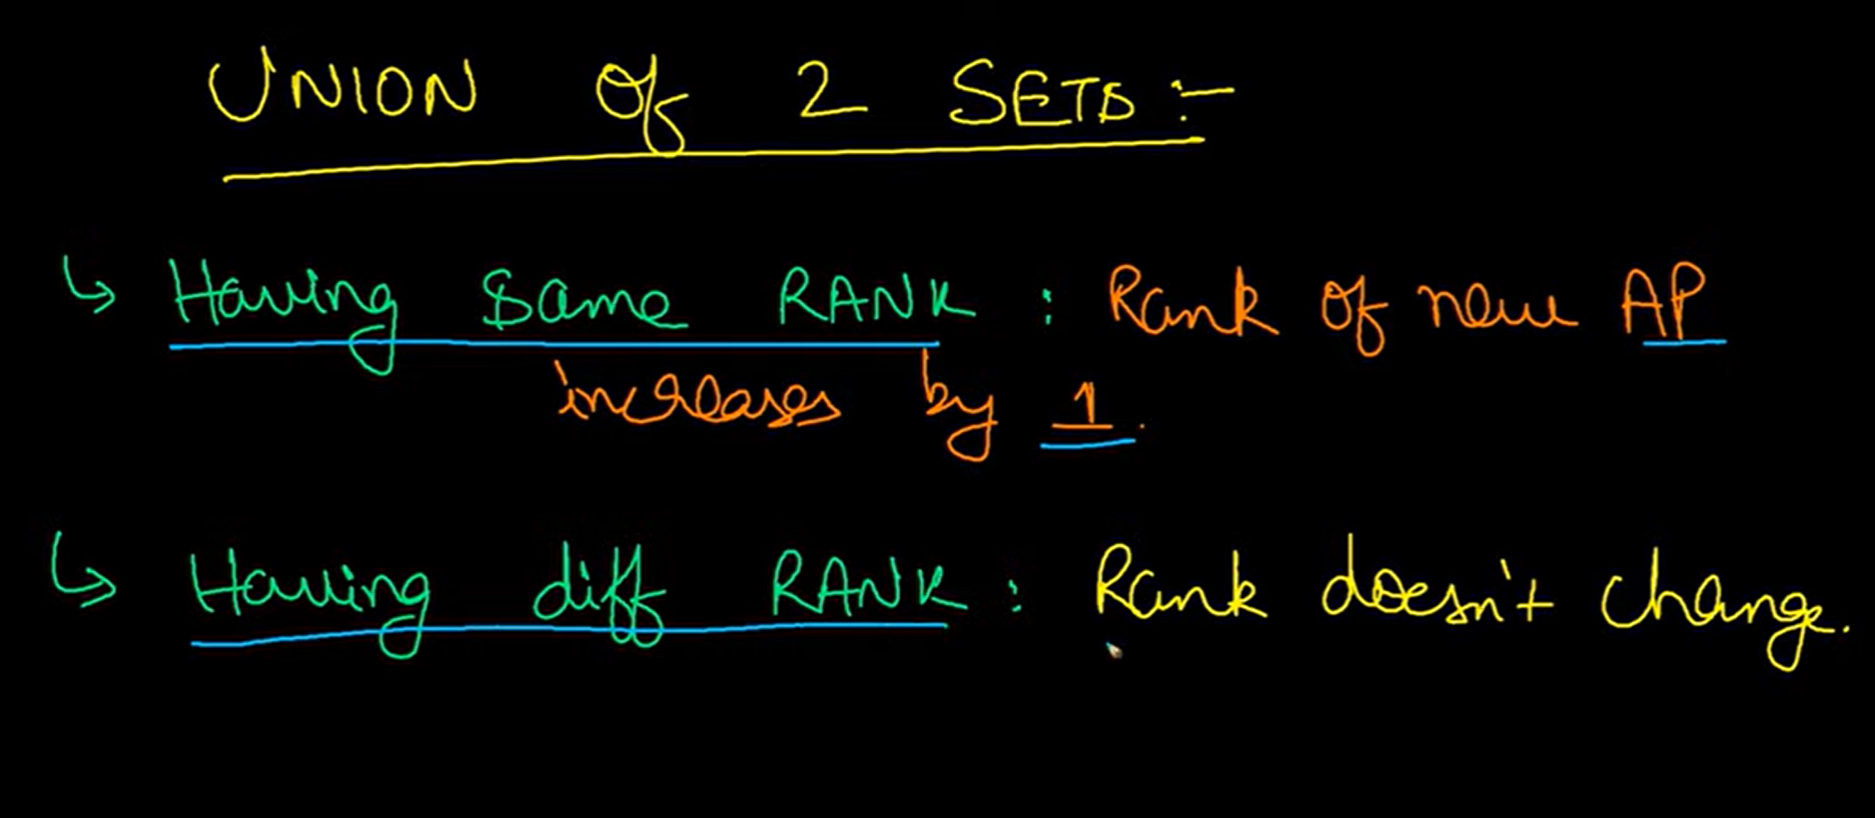 UNION Of 2 SETS :-
↳ Having Same RANK : Rank of new AP
increases by 1.
↳ Having diff RANK : Rank doesn't change.